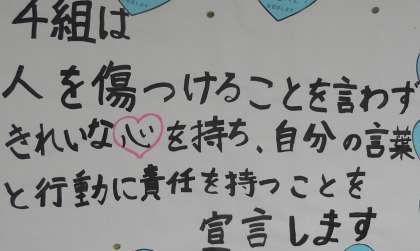 4組は
人を傷つけることを言わず
きれいな心を持ち、自分の言葉
と行動に責任を持つことを
宣言します